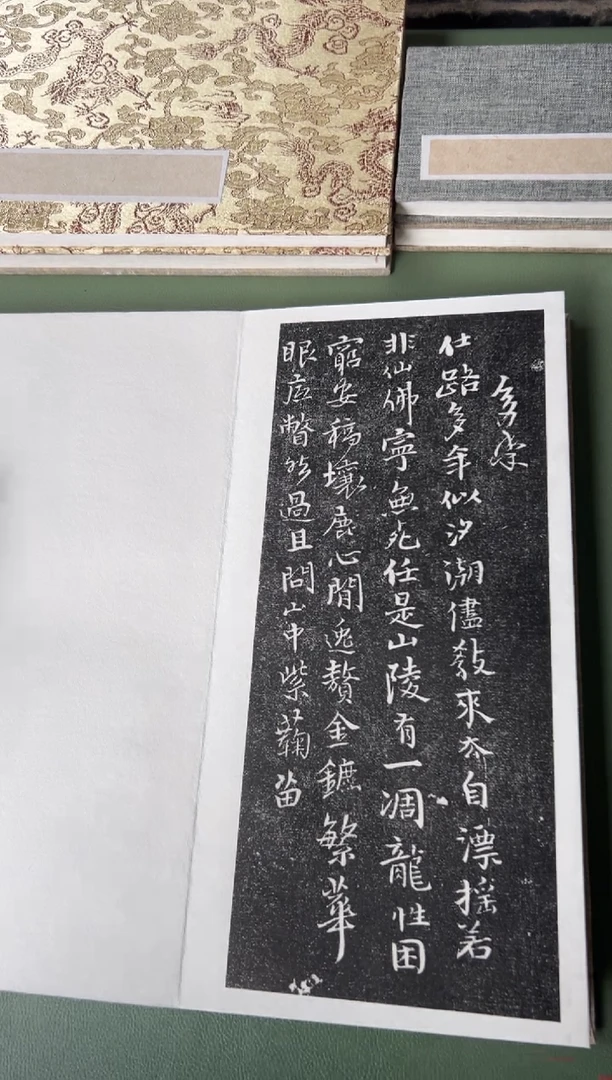 仕路多年似汐潮儘敎來去自漂搖若
非仙佛寧無死任是山陵有一凋龍性困
窮安稿壤鹿心閒逸贅金鑣繁華
眼底瞥然過且問山中紫蘜苗